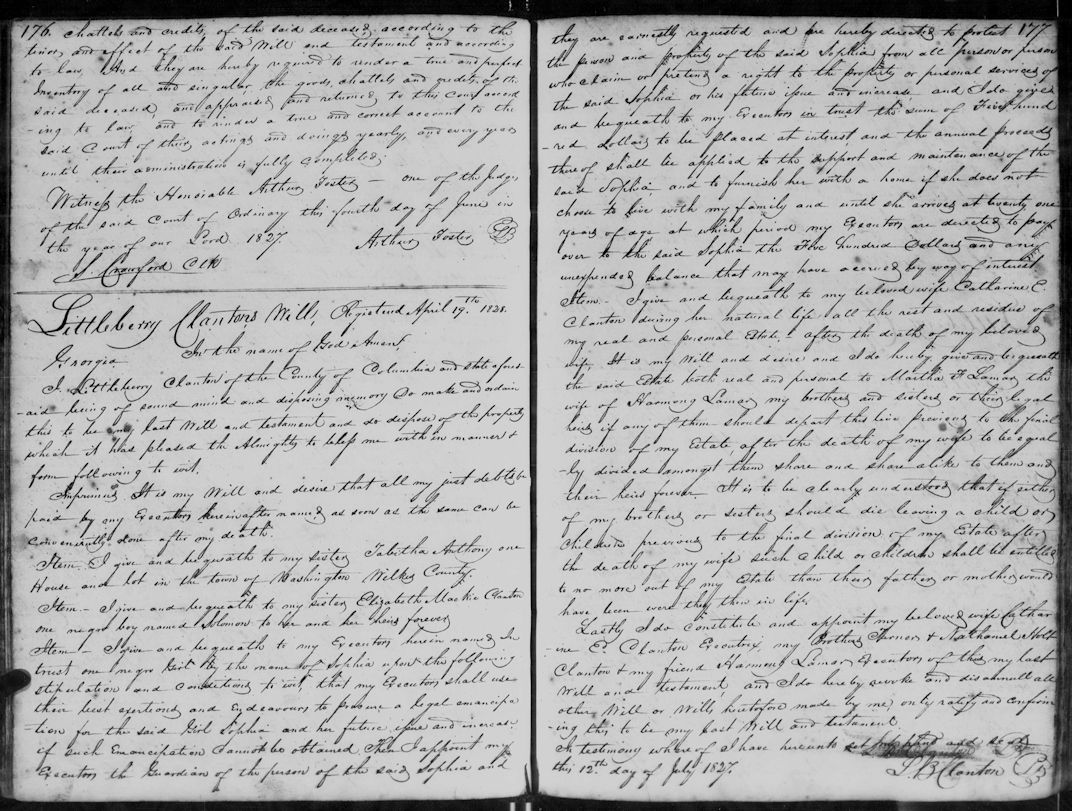 176. chattels and credits, of the said deceased, according to the
tenor, and effect of the said Will and testament and according
to law, And they are hereby required to render a true and perfect
Inventory of all and singular the goods, chattels and credits, of the
said deceased, and appraised and returned, to this Court accord
-ing to law, and to render a true and correct account to the
said Court of their actings and doings yearly, and every year
until their administration is fully completed,
Witness the Honorable Arthur Foster — one of the Judges
of the said Court of Ordinary this fourth day of June in
the year of our Lord 1827. Arthur Foster
Crawford Clk
Littleberry Clantons Will, Registered April 19th 1828.
Georgia In the name of God Amen,
I Littleberry Clanton of the County of Columbia and state afores
-aid being of sound mind and disposing memory Do make and ordain
this to be my last Will and testament and do dispose of the property
which it has pleased the Almighty to bless me with in manner &
form following to wit,
Imprimis It is my Will and desire that all my just debts be
paid by my Executors hereinafter named, as soon as the same can be
conveniently done after my death.
Item. I give and bequeath to my sister Tabitha Anthony one
House and lot in the town of Washington Wilkes County.
Item — I give and bequeath to my sister Elizabeth Mackie Clanton
one negro boy named Solomon to her and her heirs forever
Item — I give and bequeath to my Executors herein named, In
trust one negro Girl by the name of Sophia upon the following
stipulation and conditions to wit, that my Executors shall use
their best exertions and Endeavours to procure a legal emancipa
tion for the said Girl Sophia and her future issue and increase
if such Emancipation cannot be obtained, Then I appoint my
Executors the Guardian of the person of the said Sophia and
they are earnestly requested and are hereby directed to protect 177
the person and property of the said Sophia from all person or person
who claim or pretend a right to the property or personal services of
the said Sophia or his future issue and increase and I do give
and bequeath to my Executors in trust the sum of Five hund
-red dollars to be placed at interest, and the annual proceeds
thereof shall be applied to the support and maintenance of the
said Sophia and to furnish her with a home if she does not
choose to live with my family and until she arrives at twenty one
years of age at which period my Executors are directed to pay
over to the said Sophia the Five hundred Dollars and any
unexpended balance that may have accrued by way of interest
Item — I give and bequeath to my beloved wife Catharine E.
Clanton during her natural life all the rest and residue of
my real and personal Estate, — after the death of my beloved
wife, It is my Will and desire and I do hereby give and bequeath
the said Estate both real and personal to Martha F Lamar the
wife of Harmong Lamar my brothers and sisters or their legal
heirs if any of them should depart this live previous to the final
division of my Estate, after the death of my wife to be equal
-ly divided amongst them share and share alike to them and
their heirs forever — It is to be clearly understood that if either
of my brothers or sisters should die leaving a child or
Children previous to the final division of my Estate after
the death of my wife such child or children shall be entitled
to no more out of my Estate than their father or mother would
have been were they then in life,
Lastly I do constitute and appoint my beloved wife Cathar
-ine E. Clanton Executrix, my Brothers Turner & Nathaniel Holt
Clanton & my friend Harmong Lamar Executors of this my last
Will and testament and I do hereby revoke and disannull all
other Will or Wills heretofore made by me, only ratify and confirm
-ing this to be my last Will and testament
In testimony where of I have hereunto set my hand and seal
this 12th day of July 1827. L B Clanton